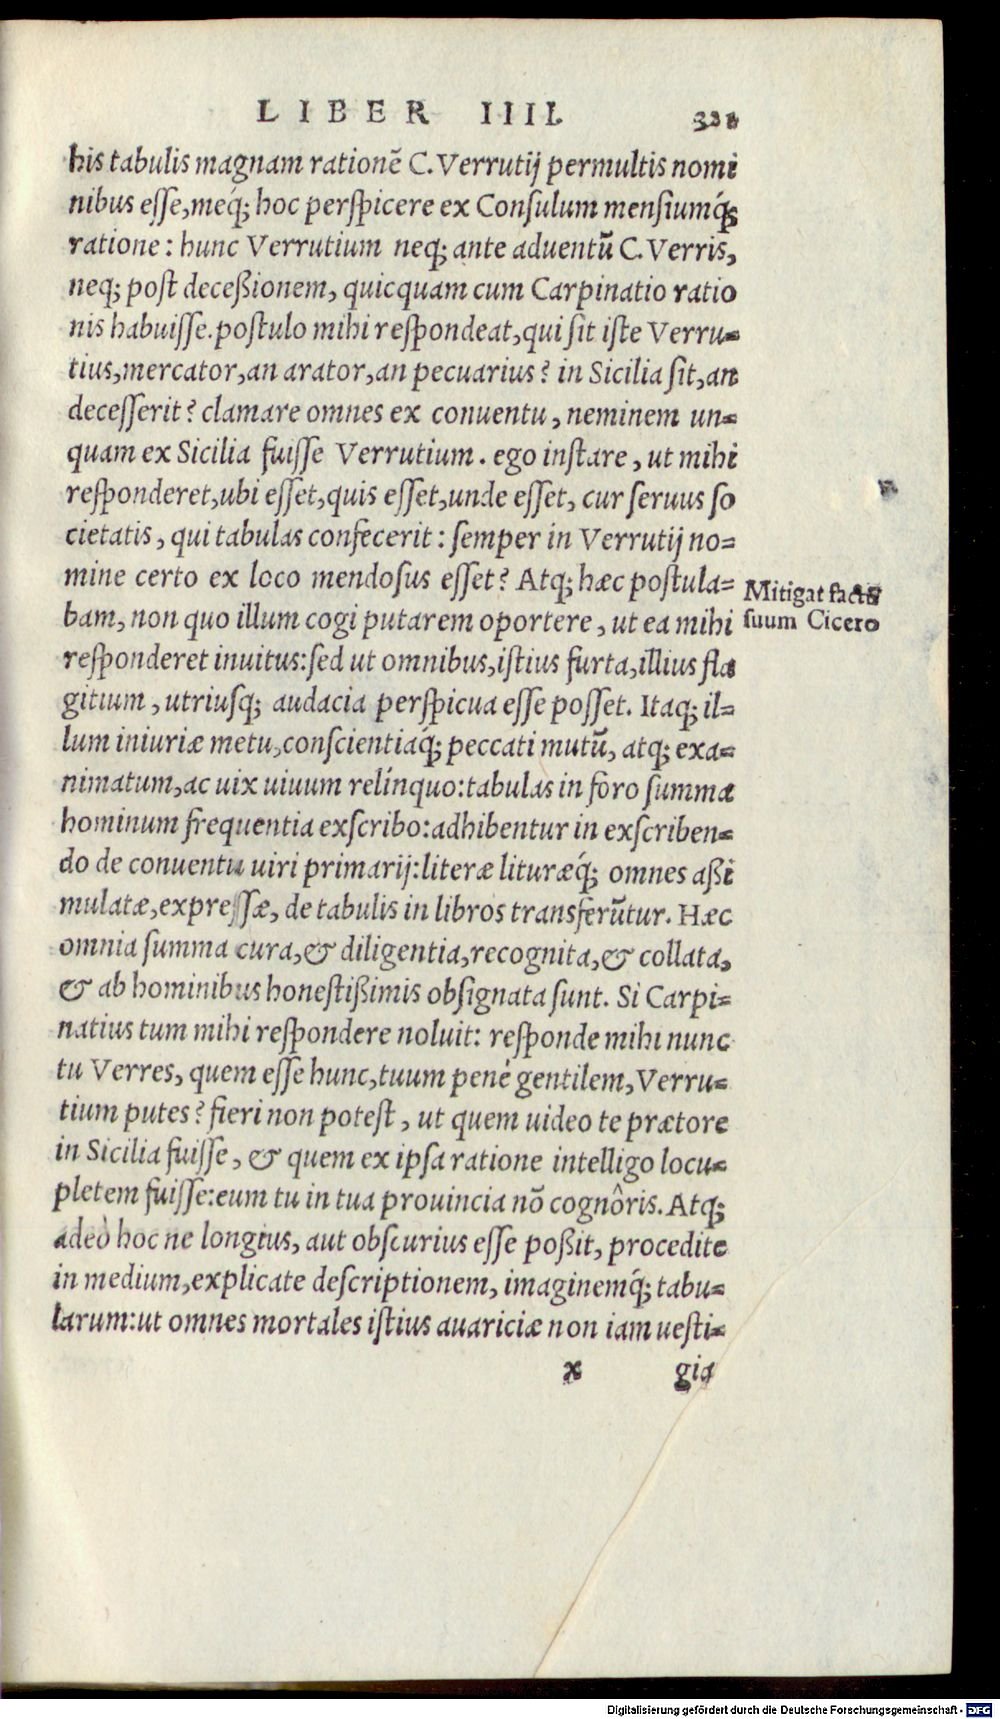 LIBER IIII. 321
his tabulis magnam rationē C. Verrutij permultis nomi
nibus esse, meq́; hoc perspicere ex Consulum mensiumq́;
ratione: hunc Verrutium neq; ante aduentū C. Verris,
neq; post deceßionem, quicquam cum Carpinatio ratio
nis habuisse. postulo mihi respondeat, qui sit iste Verru=
tius, mercator, an arator, an pecuarius? in Sicilia sit, an
decesserit? clamare omnes ex conuentu, neminem un=
quam ex Sicilia fuisse Verrutium. ego instare, ut mihi
responderet, ubi esset, quis esset, unde esset, cur seruus so
cietatis, qui tabulas confecerit: semper in Verrutij no=
mine certo ex loco mendosus esset? Atq; hæc postula=
bam, non quo illum cogi putarem oportere, ut ea mihi
responderet inuitus: sed ut omnibus, istius furta, illius fla
gitium, utriusq; audacia perspicua esse posset. Itaq; il=
lum iniuriæ metu, conscientiaq́; peccati mutū, atq; exa=
nimatum, ac uix uiuum relinquo: tabulas in foro summa
hominum frequentia exscribo: adhibentur in exscriben=
do de conuentu uiri primarij: literæ lituræq́; omnes aßi
mulatæ, expressæ, de tabulis in libros transferūtur. Hæc
omnia summa cura, & diligentia, recognita, & collata,
& ab hominibus honestißimis obsignata sunt. Si Carpi=
natius tum mihi respondere noluit: responde mihi nunc
tu Verres, quem esse hunc, tuum penè gentilem, Verru=
tium putes? fieri non potest, ut quem uideo te prætore
in Sicilia fuisse, & quem ex ipsa ratione intelligo locu=
pletem fuisse: eum tu in tua prouincia nō cognôris. Atq;
adeò hoc ne longius, aut obscurius esse poßit, procedite
in medium, explicate descriptionem, imaginemq́; tabu=
larum: ut omnes mortales istius auariciæ non iam uesti=
x gia
Mitigat factū
suum Cicero
Digitalisierung gefördert durch die Deutsche Forschungsgemeinschaft - DFG